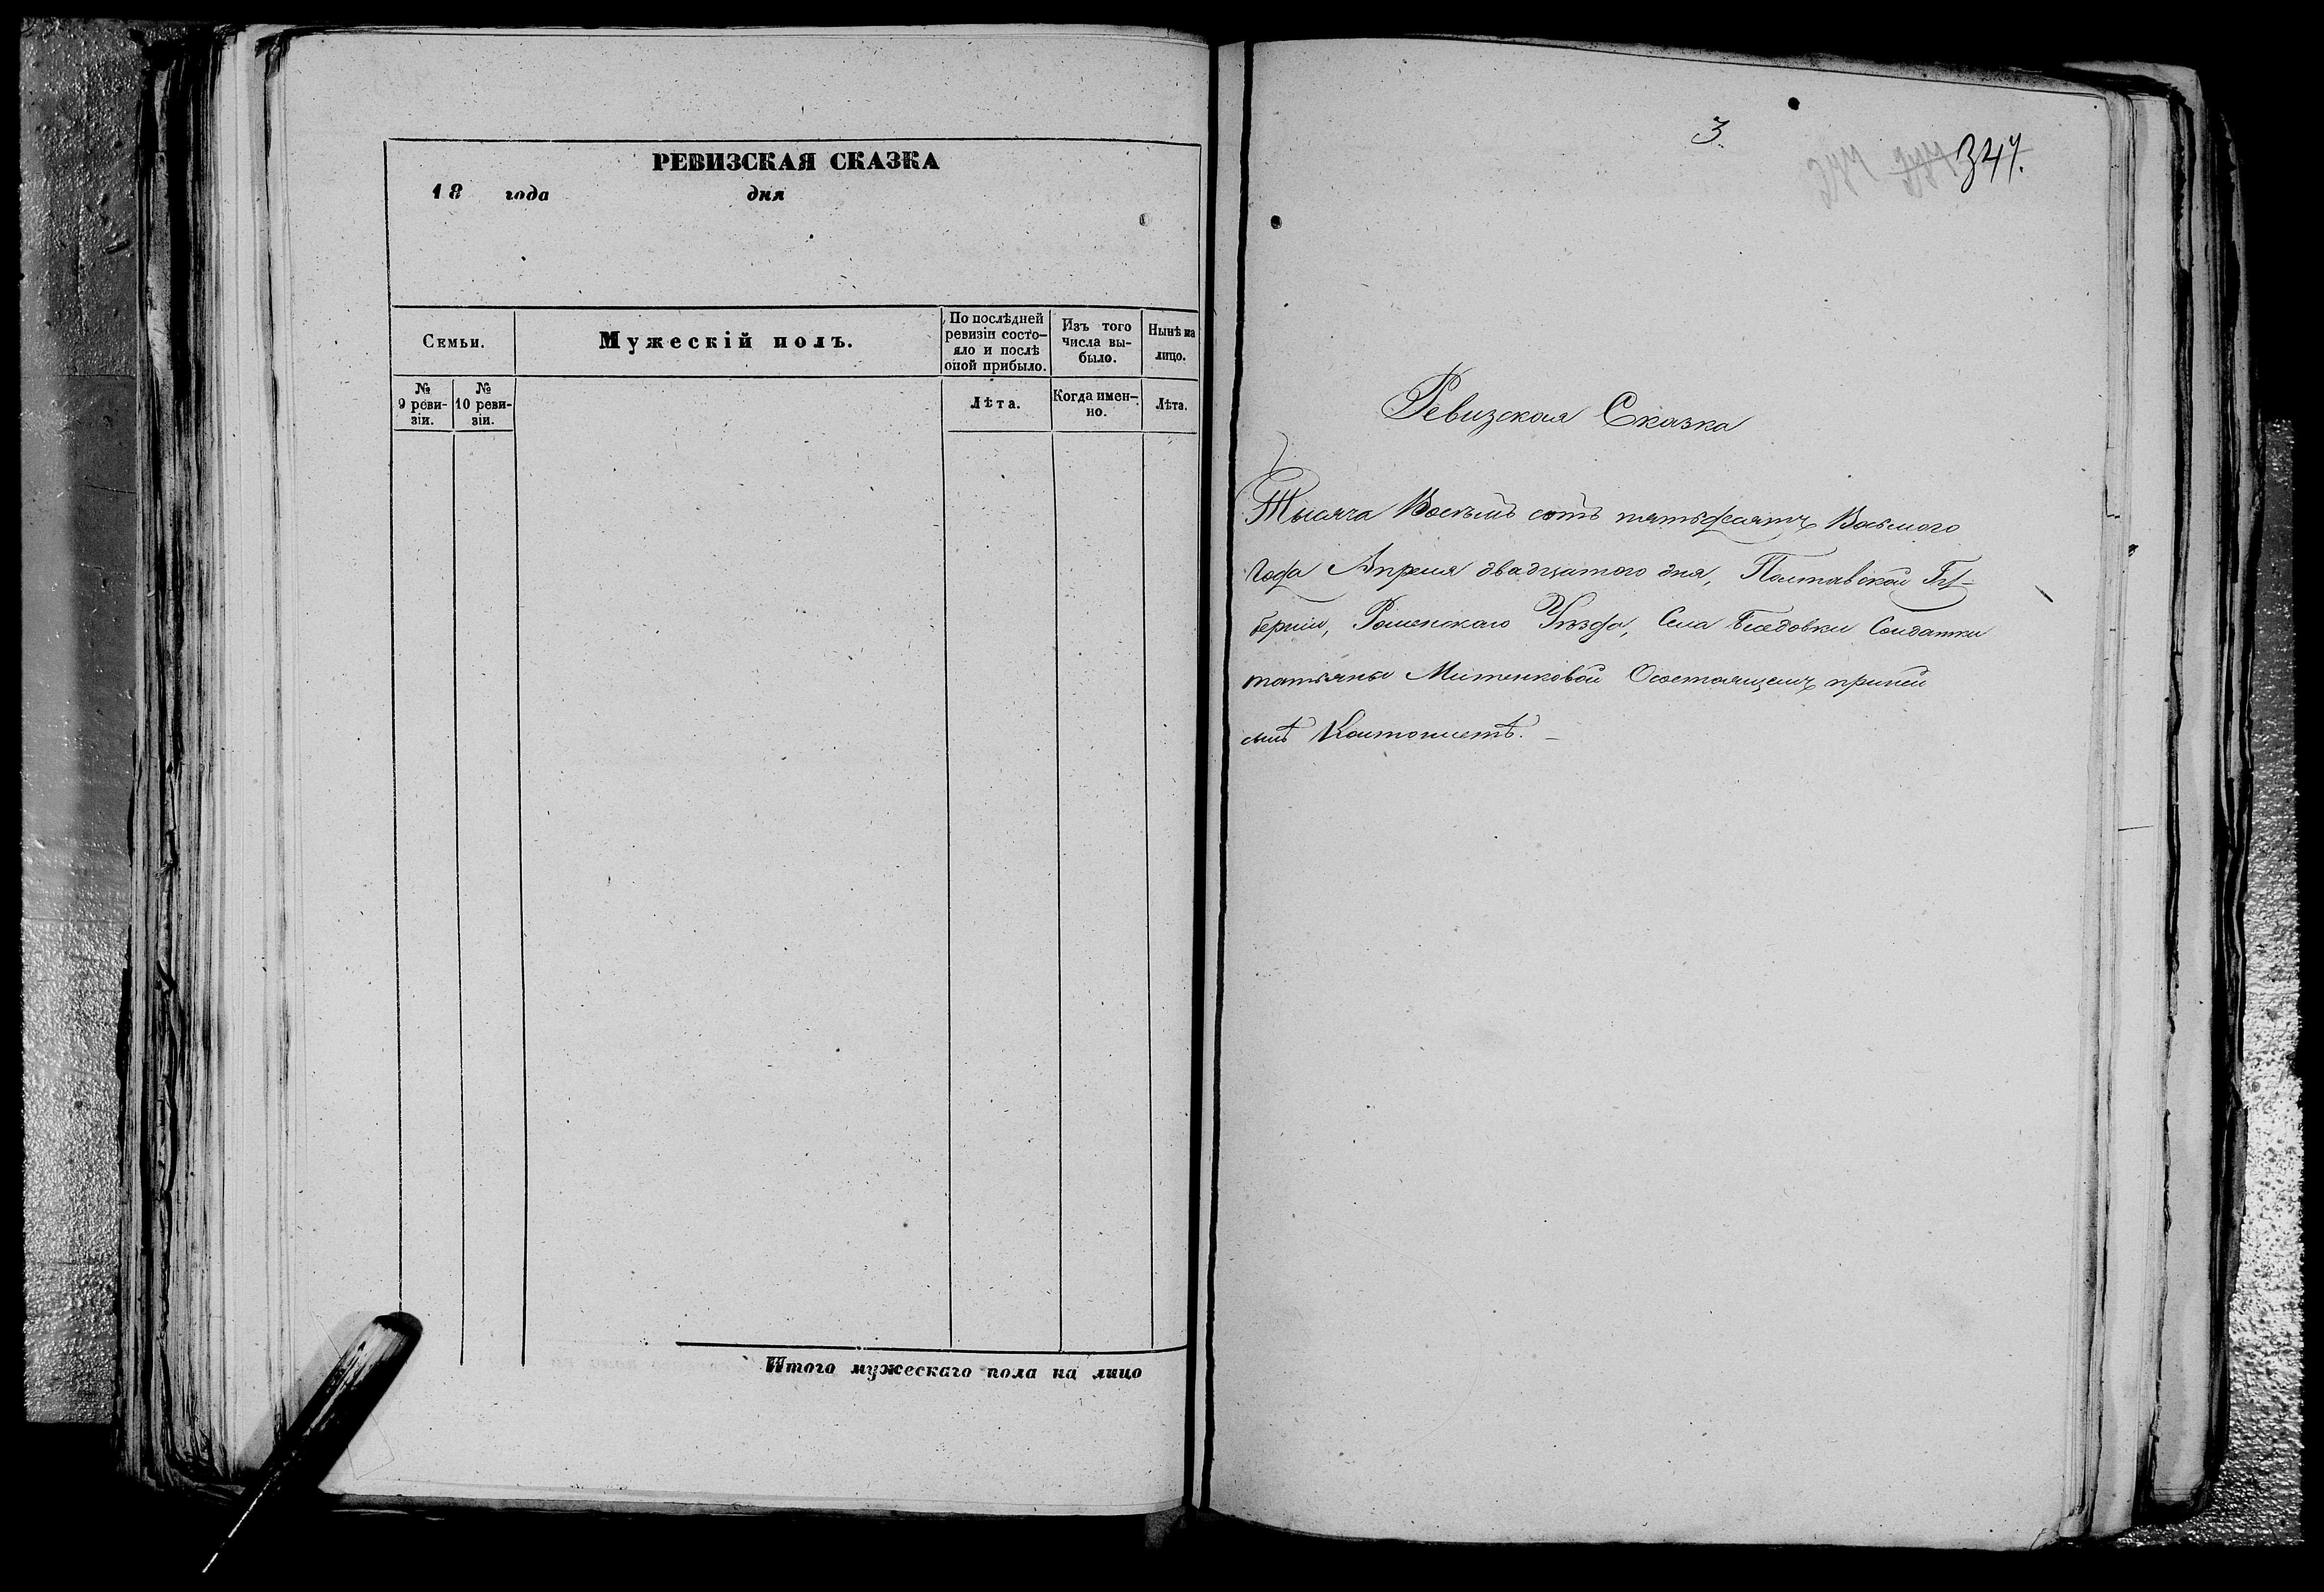 РЕВИЗСКАЯ СКАЗКА
18 года дня
Семьи.
Мужескій полъ.
По послѣдней ревизіи состо-
яло и послѣ оной прибыло.
Изъ того числа вы-
было.
Нынѣ на лицо.
№ 9 реви-
зіи.
№ 10 реви-
зіи.
Лѣта.
Когда имен-
но.
Лѣта.
Итого мужескаго пола на лицо
3.
347.
Ревизская Сказка
Тысяча Восемъ сотъ пятьдесятъ Восьмого
Года Апреля двадцатого дня, Полтавской Гу-
берніи, Роменскаго Уѣзда, Села Беседовки Солдатки
татьяны Митенковой Осостоящемъ приней
сынѣ Контонистѣ. –